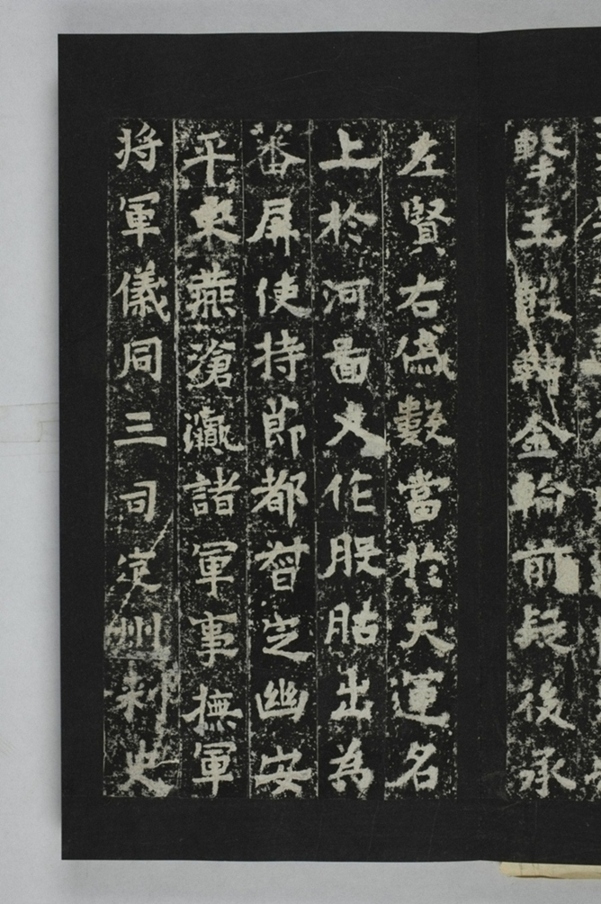 擊玉毂轉金輪前疑後承
左賢右戚數當於天運名
上於河圖入作股肱出為
蕃屏使持節都督定幽安
平東燕滄瀛諸軍事撫軍
將軍儀同三司定州刺史